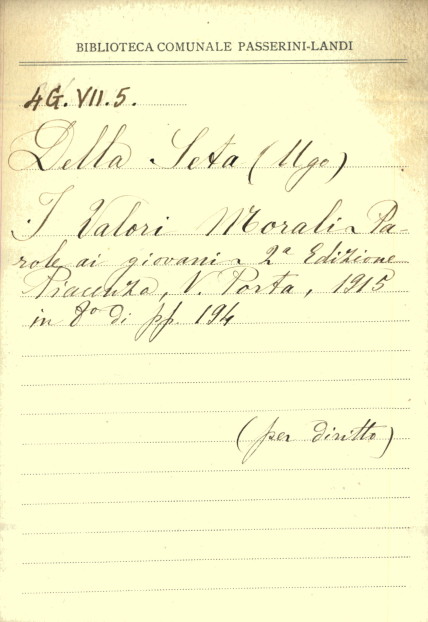 BIBLIOTECA COMUNALE PASSERINI-LANDI
4G. VII. 5.
Della Seta (Ugo)
I Valori Morali ~ Pa-
role ai giovani ~ 2ª Edizione
Piacenza, V. Porta, 1915
in 8º di pp. 194
(per diritto)